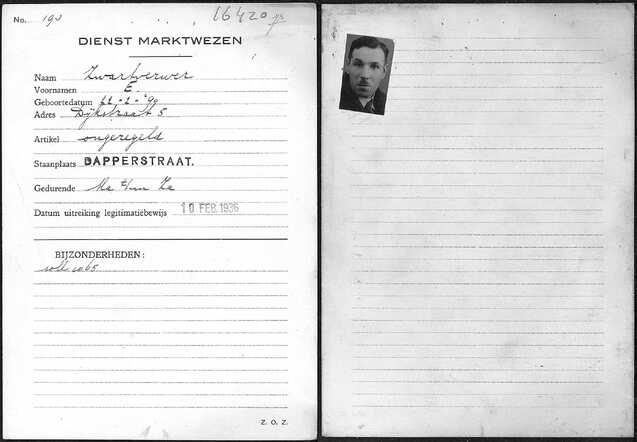 No. 193 16420
DIENST MARKTWEZEN
Naam Zwartverwer
Voornamen E.
Geboortedatum 22-2-'99
Adres Dijkstraat 5
Artikel ongeregeld
Staanplaats DAPPERSTRAAT.
Gedurende Ma t/m Za
Datum uitreiking legitimatiebewijs 10 FEB. 1936
BIJZONDERHEDEN:
Z. O. Z.